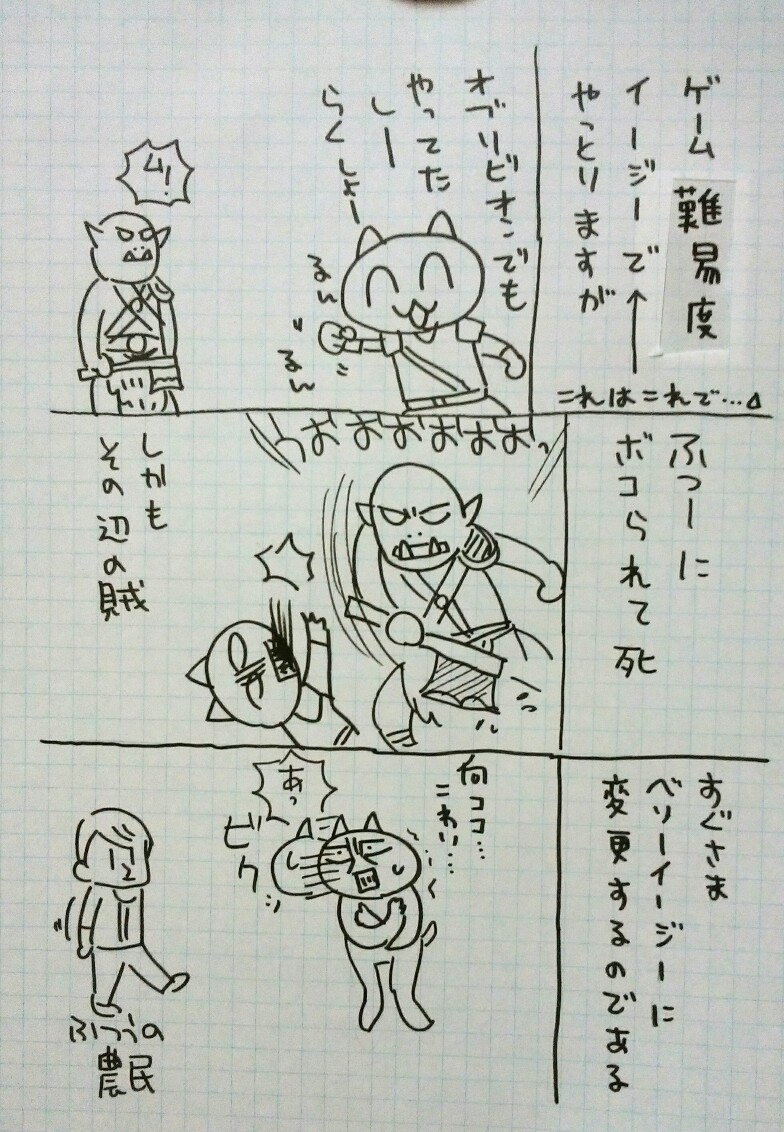 ゲーム難易度
イージーで
やっとりますが
これはこれで…
オブリビオンでも
やってた
しー
らくしょー
るん
るん
ム!
ふつーに
ボコられて死
うおおおおおおっ
しかも
その辺の賊
すぐさま
ベリーイージーに
変更するのである
何ココ…
こわい…
あっ
ビクッ
ふつうの
農民